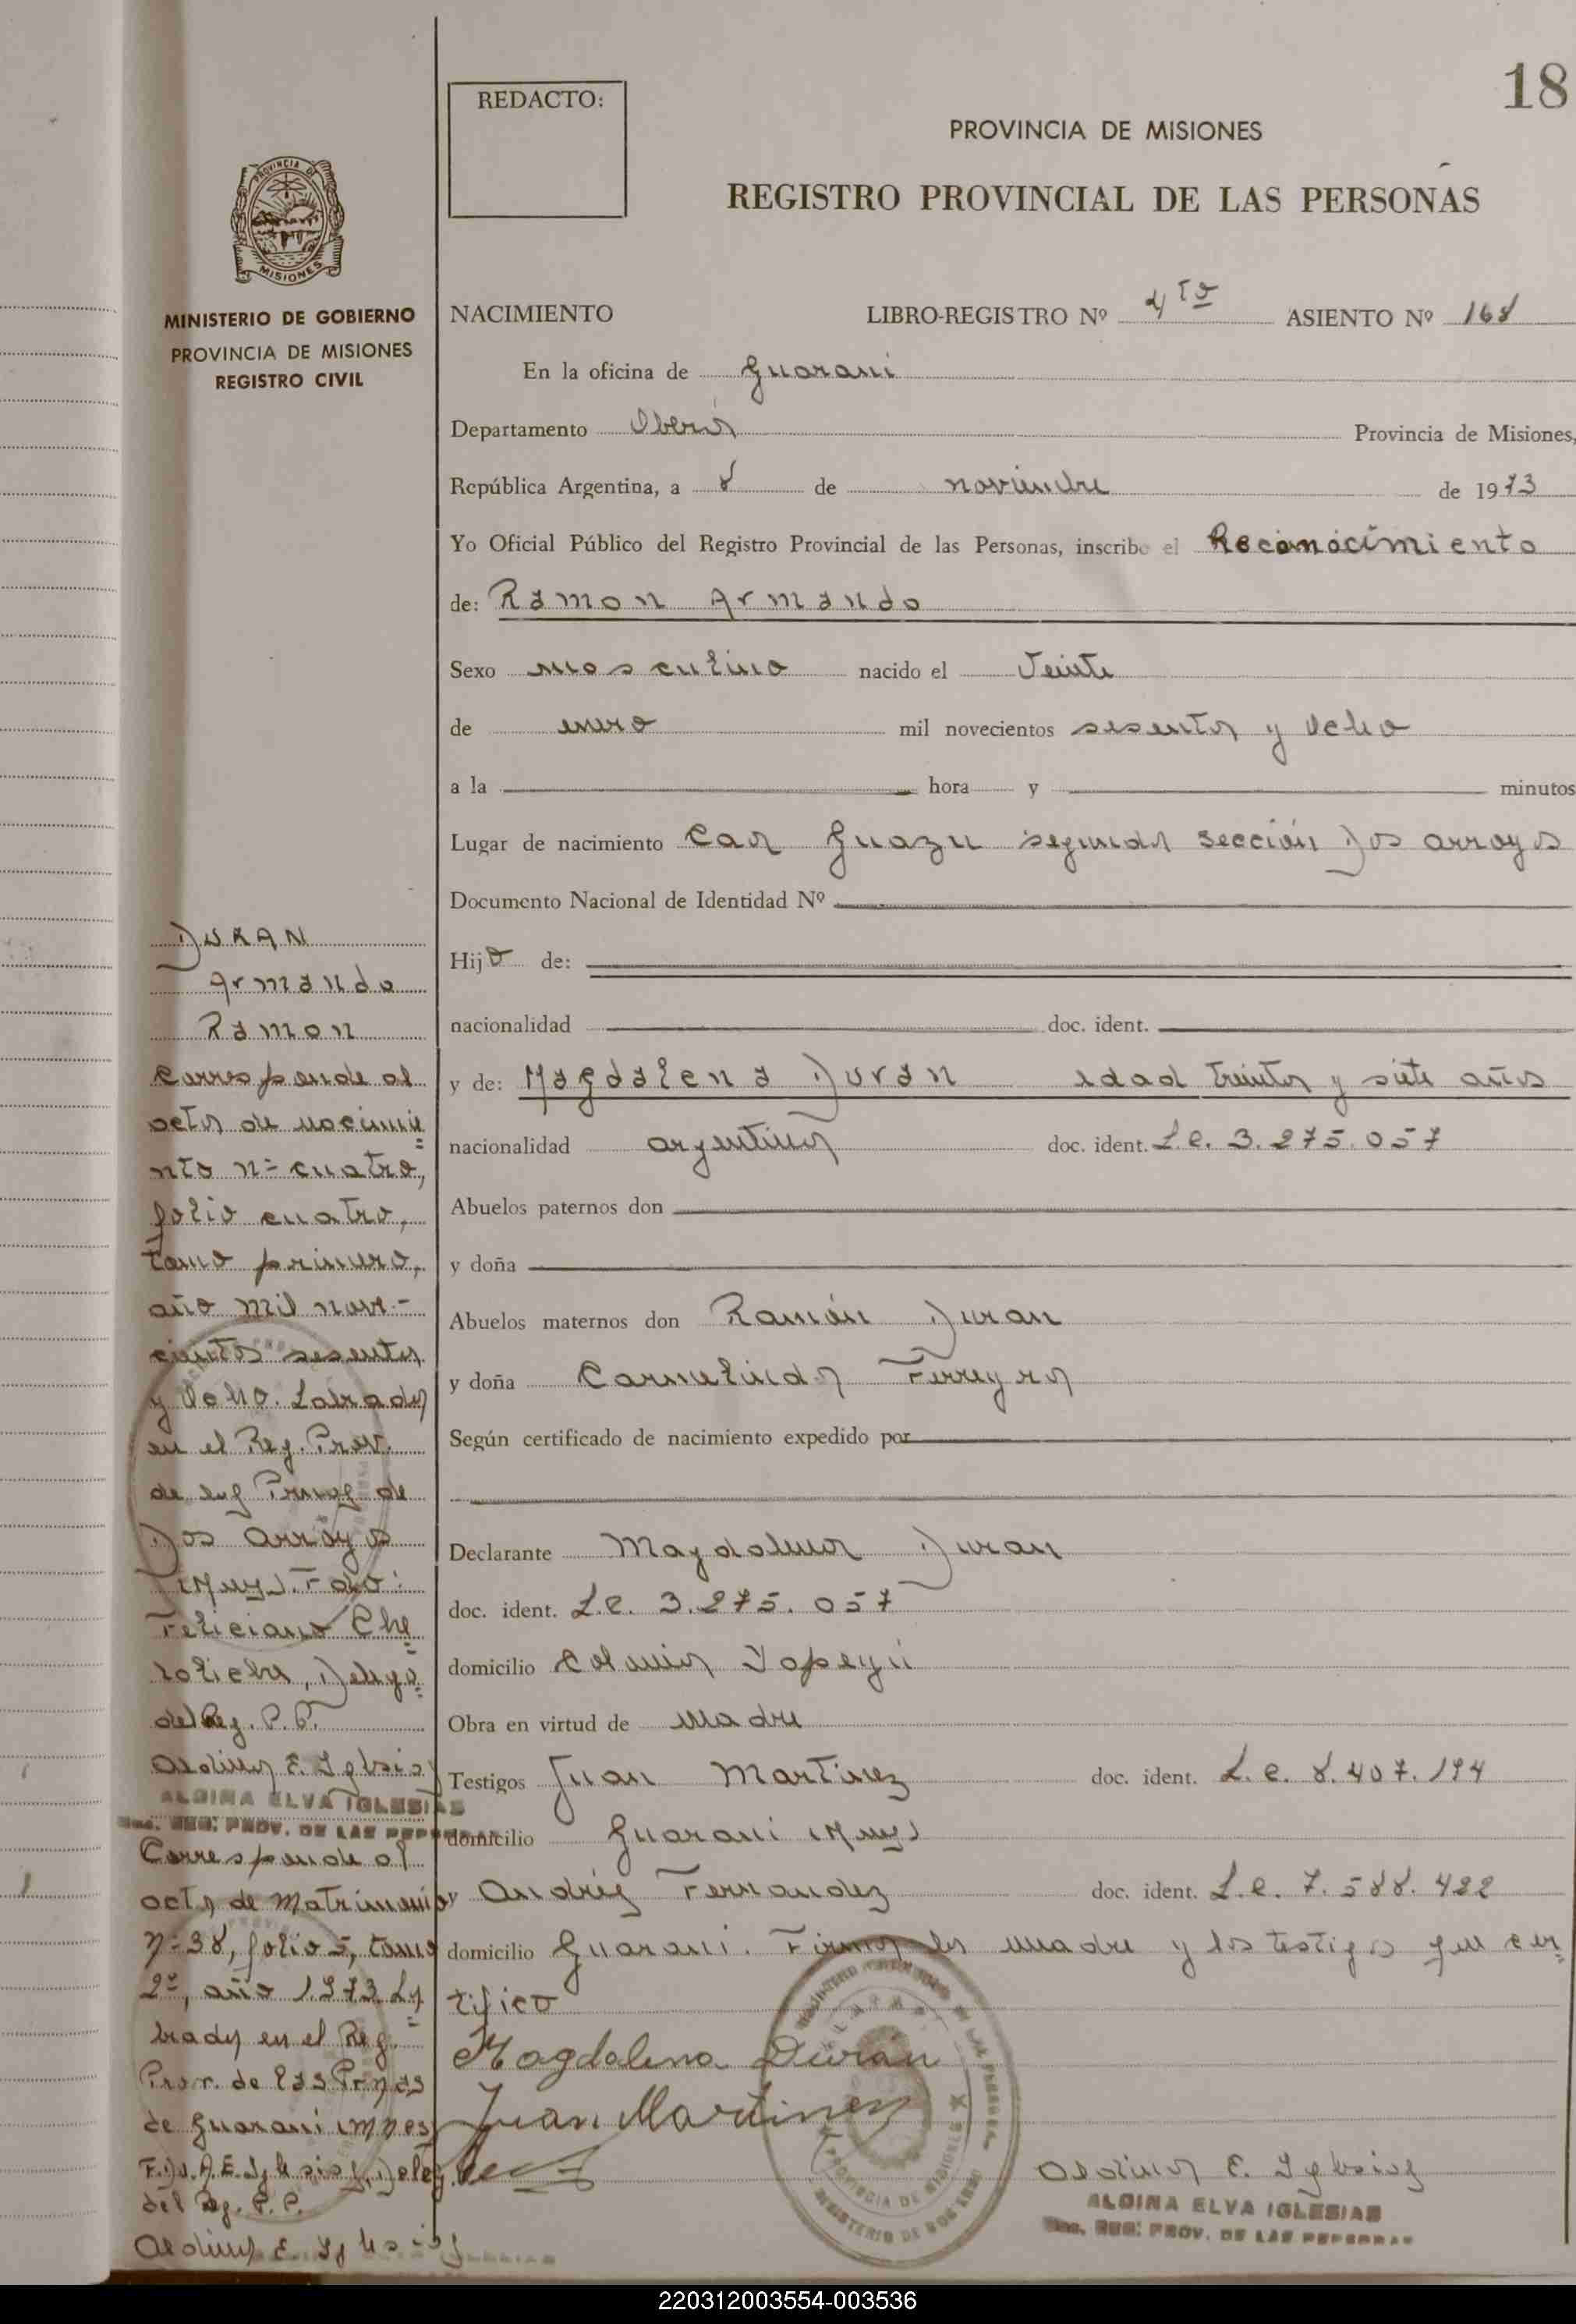 18
REDACTO:
PROVINCIA DE MISIONES
REGISTRO PROVINCIAL DE LAS PERSONAS
PROVINCIA DE
MISIONES
MINISTERIO DE GOBIERNO
PROVINCIA DE MISIONES
REGISTRO CIVIL
NACIMIENTO LIBRO-REGISTRO Nº 4to ASIENTO Nº 168
En la oficina de Guarani
Departamento Oberá Provincia de Misiones,
República Argentina, a 8 de noviembre de 1973
Yo Oficial Público del Registro Provincial de las Personas, inscribo el Reconocimiento
de: Ramon Armando
Sexo masculino nacido el Veinte
de enero mil novecientos sesenta y ocho
a la hora y minutos
Lugar de nacimiento Caa Guazu segunda sección Dos arroyos
Documento Nacional de Identidad Nº
Hijo de:
nacionalidad doc. ident.
y de: Magdalena Duran edad treinta y siete años
nacionalidad argentina doc. ident. L.C. 3.275.057
Abuelos paternos don
y doña
Abuelos maternos don Ramón Duran
y doña Carmelinda Ferreyra
Según certificado de nacimiento expedido por
Declarante Magdalena Duran
doc. ident. L.C. 3.275.057
domicilio Colonia Yapeyú
Obra en virtud de madre
Testigos Juan Martinez doc. ident. L.E. 8.407.194
domicilio Guarani (Mnes)
y Andrés Fernandez doc. ident. L.E. 7.588.422
domicilio Guarani. Firman la madre y los testigos que cer=
tifico
Magdalena Durán
Juan Martinez
Aldina E. Iglesias
ALDINA ELVA IGLESIAS
REG. PROV. DE LAS PERSONAS
DURAN
Armando
Ramon
Corresponde al
acta de nacimie=
nto nº cuatro,
folio cuatro,
tomo primero,
año mil nove-
cientos sesenta
y ocho. Labrada
en el Reg. Prov.
de las Prnas de
Dos Arroyos
(Mnes). Fdo:
Feliciano Che=
rolicha, Delegº.
del Reg. P.P.
Aldina E. Iglesias
ALDINA ELVA IGLESIAS
REG. PROV. DE LAS PERSONAS
Corresponde al
acta de Matrimonio
nº 38, folio 5, tomo
2º, año 1.973. La=
brada en el Reg.
Prov. de las Prnas
de Guarani (Mnes)
Fdo. A.E. Iglesias, Deleg.
del Reg. P.P.
Aldina E. Iglesias
220312003554-003536